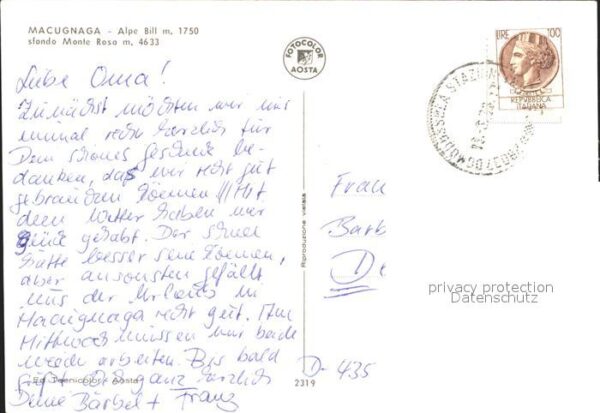 MACUGNAGA - Alpe Bill m. 1750
sfondo Monte Rosa m. 4633
Liebe Oma!
Zunächst möchten wir uns
einmal recht herzlich für
Dein schönes Geschenk be-
danken, das wir recht gut
gebrauchen können!!! Mit
dem Wetter haben wir
Glück gehabt. Der Schnee
hätte besser sein können,
aber ansonsten gefällt
uns der Urlaub in
Macugnaga recht gut. Am
Mittwoch müssen wir beide
wieder arbeiten. Bis bald
grüßt Dich ganz herzlich
Deine Bärbel + Franz
Ed. Tecnicolor - Aosta
FOTOCOLOR
AOSTA
Riproduzione vietata
2319
LIRE 100
REPUBBLICA
ITALIANA
Frau
Barb
De
D- 435
privacy protection
Datenschutz